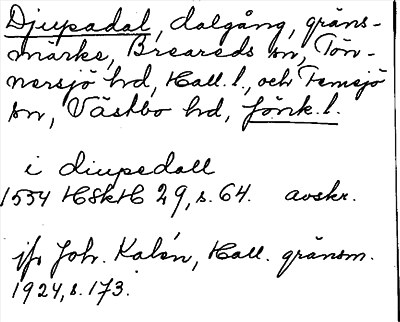 Djupadal, dalgång, gräns-
märke, Breareds sn, Tön-
nersjö hd, Hall. l., och Femsjö
sn, Västbo hd, Jönk. l.
i diupedall
1554 HSkH 29, s. 64. avskr.
jfr Joh. Kalén, Hall. gränsm.
1924, s. 173.